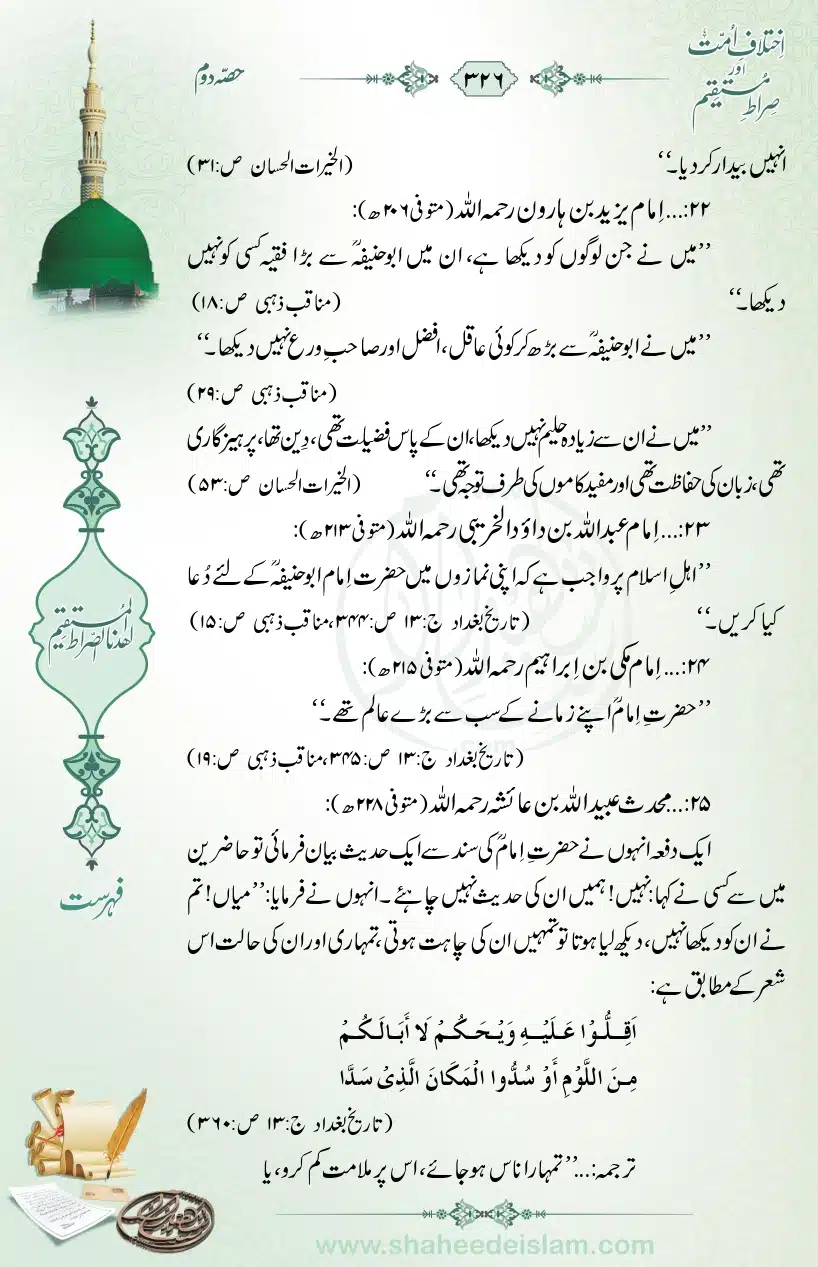 اِختلافِ اُمّت
اور
صِراطِ مُستقیم
۳۲۶
حصّہ دوم
انہیں بیدار کردیا۔‘‘ (الخیرات الحسان ص:۳۱)
۲۲:... اِمام یزید بن ہارون رحمہ اللہ (متوفی ۲۰۶ھ):
’’میں نے جن لوگوں کو دیکھا ہے، ان میں ابوحنیفہؒ سے بڑا فقیہ کسی کو نہیں
دیکھا۔‘‘ (مناقب ذہبی ص:۱۸)
’’میں نے ابوحنیفہؒ سے بڑھ کر کوئی عاقل، افضل اور صاحبِ ورع نہیں دیکھا۔‘‘
(مناقب ذہبی ص:۲۹)
’’میں نے ان سے زیادہ حلیم نہیں دیکھا، ان کے پاس فضیلت تھی، دِین تھا، پرہیزگاری
تھی، زبان کی حفاظت تھی اور مفید کاموں کی طرف توجہ تھی۔‘‘ (الخیرات الحسان ص:۵۳)
۲۳:... اِمام عبداللہ بن داوٗد الخریبی رحمہ اللہ (متوفی ۲۱۳ھ):
’’اہلِ اسلام پر واجب ہے کہ اپنی نمازوں میں حضرت اِمام ابوحنیفہؒ کے لئے دُعا
کیا کریں۔‘‘ (تاریخ بغداد ج:۱۳ ص:۳۴۴، مناقب ذہبی ص:۱۵)
۲۴:... اِمام مکی بن اِبراہیم رحمہ اللہ (متوفی ۲۱۵ھ):
’’حضرتِ اِمامؒ اپنے زمانے کے سب سے بڑے عالم تھے۔‘‘
(تاریخ بغداد ج:۱۳ ص:۳۴۵، مناقب ذہبی ص:۱۹)
۲۵:... محدث عبیداللہ بن عائشہ رحمہ اللہ (متوفی ۲۲۸ھ):
ایک دفعہ انہوں نے حضرتِ اِمامؒ کی سند سے ایک حدیث بیان فرمائی تو حاضرین
میں سے کسی نے کہا: نہیں! ہمیں ان کی حدیث نہیں چاہئے۔ انہوں نے فرمایا: ’’میاں! تم
نے ان کو دیکھا نہیں، دیکھ لیا ہوتا تو تمہیں ان کی چاہت ہوتی، تمہاری اور ان کی حالت اس
شعر کے مطابق ہے:
اَقِـلُّـوْا عَـلَيْـهِ وَيْـحَـكُـمْ لَا أَبَـالَـكُـمْ
مِـنَ اللَّوْمِ أَوْ سُدُّوا الْمَكَانَ الَّذِىْ سَدَّا
(تاریخ بغداد ج:۱۳ ص:۳۶۰)
ترجمہ:... ’’تمہارا ناس ہوجائے، اس پر ملامت کم کرو، یا
اِھدنا الصّراط المُستقیم
فہرست
www.shaheedeislam.com